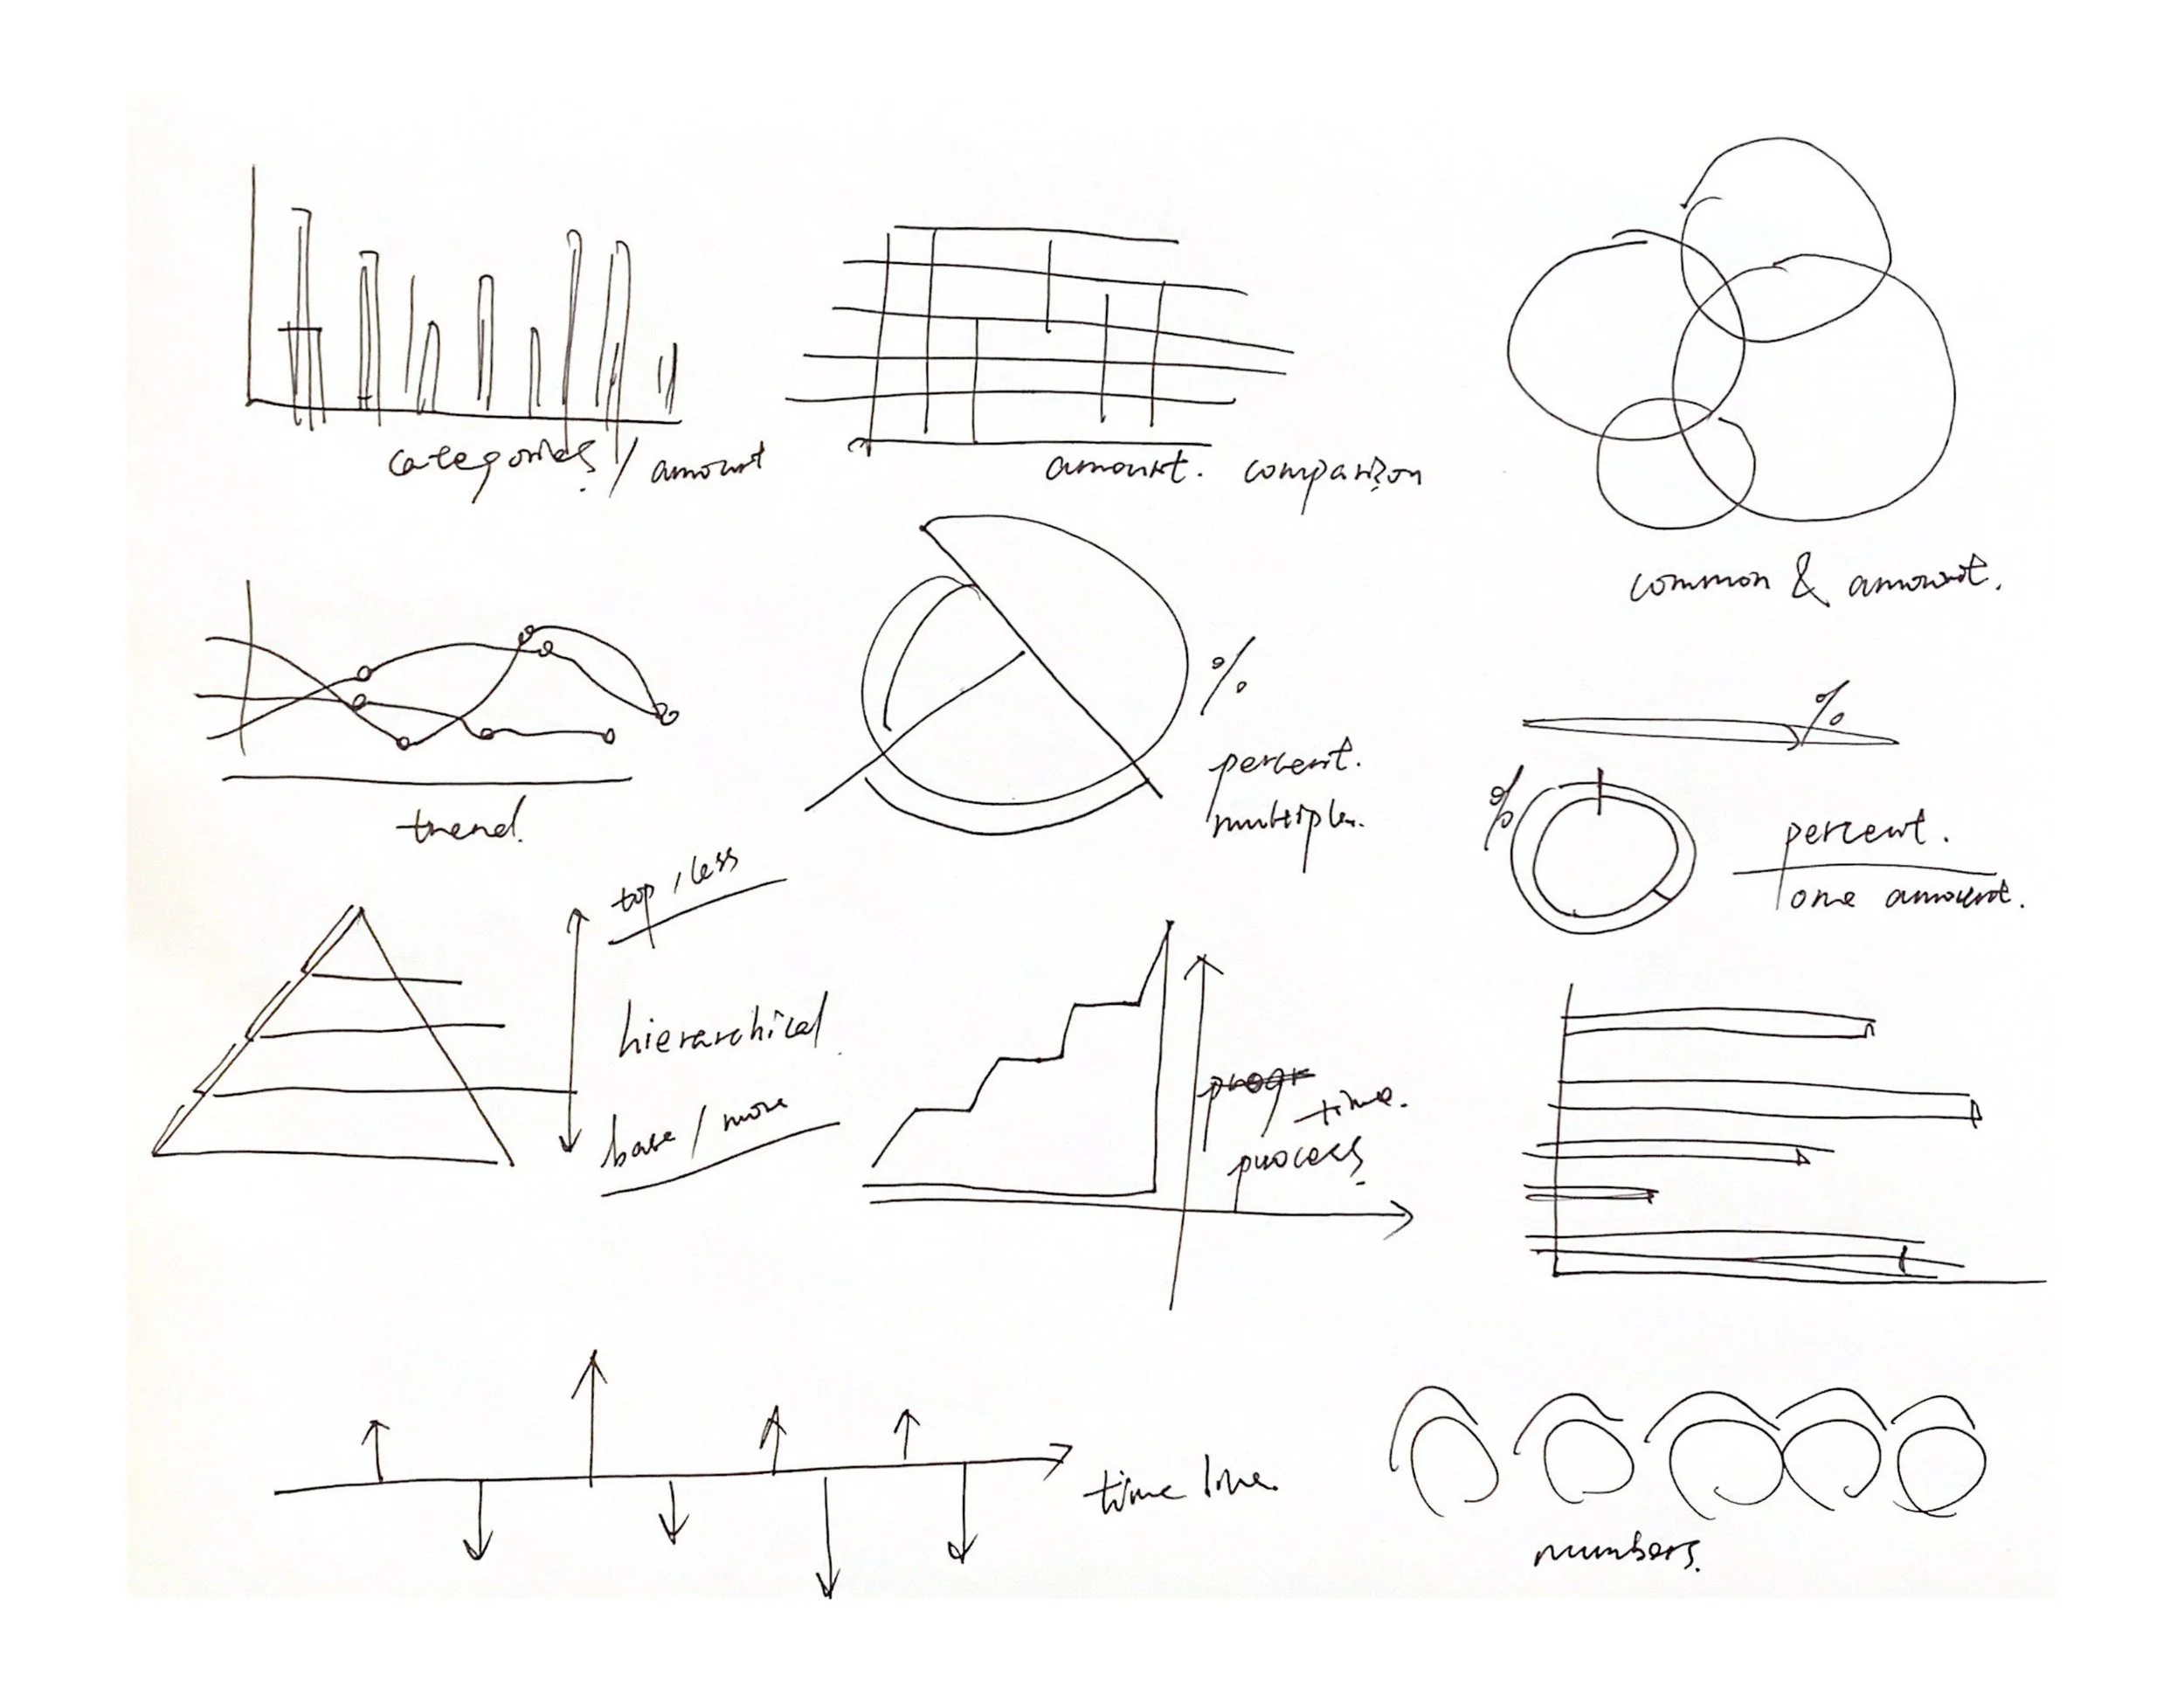 categories / amount
amount. comparison
common & amount.
trend.
%
percent.
multiple.
%
%
percent.
one amount.
top / less
hierarchical
base / more
progr
time.
process.
time line.
numbers.